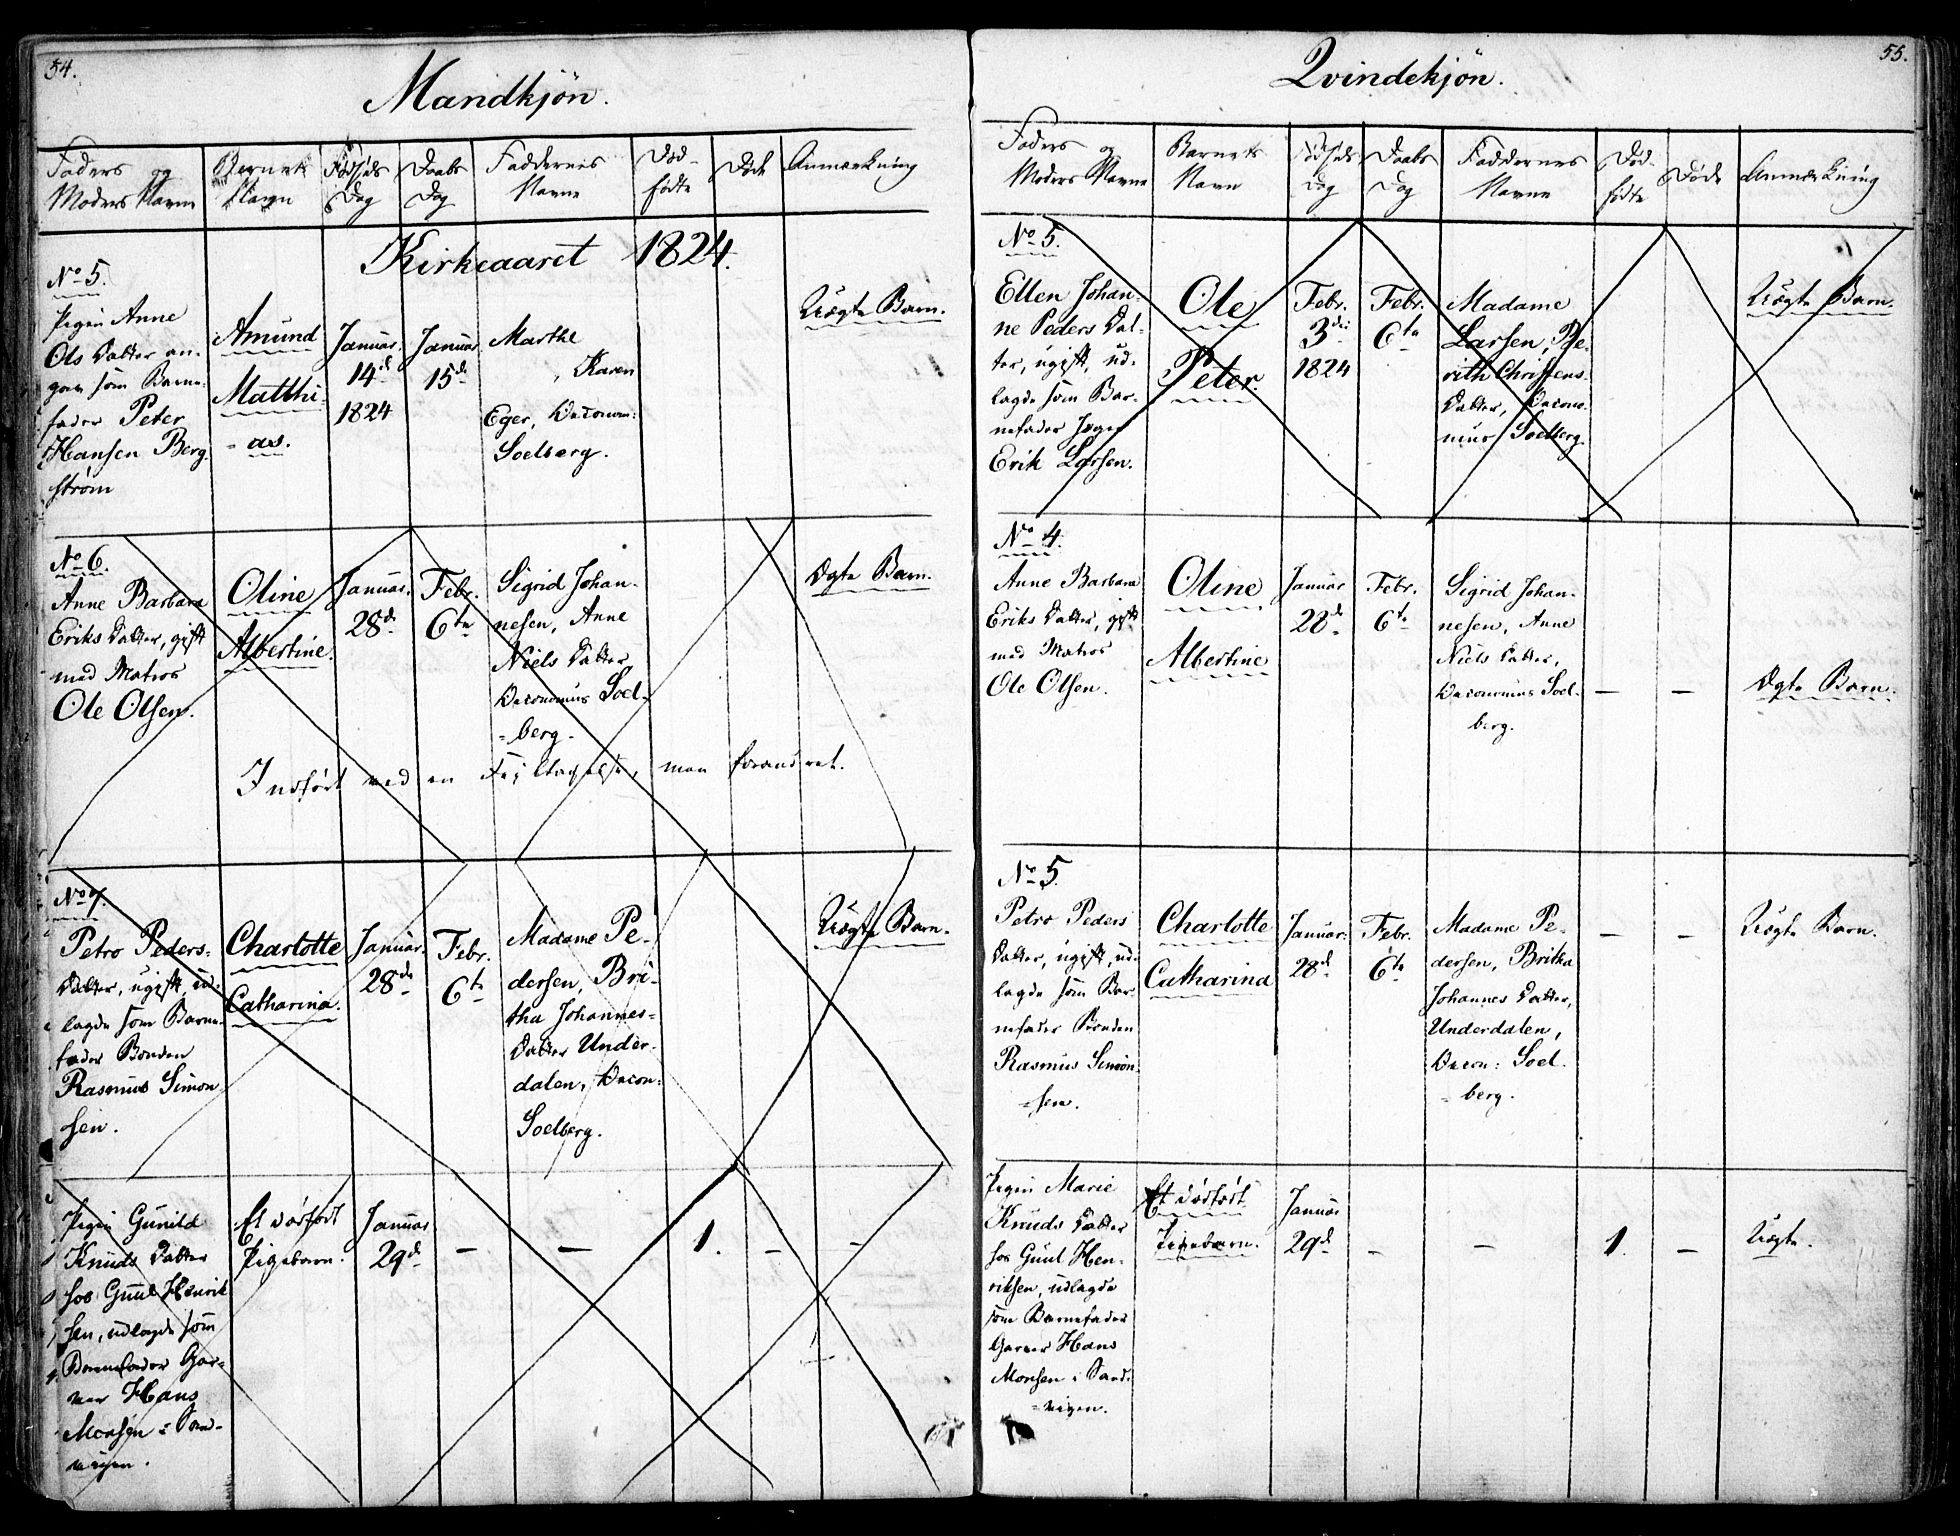 54.
Mandkjön.
Faders og
Moders Navne
Barnets
Navn
Fødsels
Dag
Daabs
Dag
Faddernes
Navne
Død-
fødte
Døde
Anmærkning
Kirkeaaret 1824.
No 5.
Pigen Anne
Ols Datter an-
gav som Barne-
fader Peter
Hansen Berg
strøm
Amund
Matthi-
as.
Januar
14de
1824
Januar
15de
Marthe
Karen
Eger, Oeconom:
Soelberg.
Uægte Barn.
No 6.
Anne Barbara
Eriks Datter, gift
med Matros
Ole Olsen.
Oline
Albertine.
Januar.
28de
Febr.
6te
Sigrid Johan-
nesen, Anne
Niels Datter
Oeconomus Soel-
berg.
Ægte Barn.
Indført ved en Fejltagelse, men forandret.
No 7.
Petro Peders-
Datter, ugift, ud-
lagde som Barne-
fader Bonden
Rasmus Simon
sen.
Charlotte
Catharina.
Januar.
28de
Febr.
6te
Madame Pe-
dersen, Bri-
tha Johannes-
Datter Under-
dalen, Oecon:
Soelberg.
Uægte Barn.
Pigen Gunild
Knuds Datter
hos Guul Henrik
sen, udlagde som
Barnefader Gar-
ver Hans
Monsen i Sand-
vigen.
Et dødfødt
Pigebarn.
Januar
29de
1.
55.
Qvindekjön.
Faders og
Moders Navne
Barnets
Navn
Fødsels
Dag
Daabs
Dag
Faddernes
Navne
Død-
fødte
Døde
Anmærkning
No 5.
Ellen Johan-
ne Peders Dat-
ter, ugift, ud-
lagde som Bar-
nefader Jæger
Erik Larsen.
Ole
Peter.
Febr.
3die
1824
Febr.
6te
Madame
Larsen, Be-
rith Christens-
Datter, Oecono-
mus Soelberg.
Uægte Barn.
No 4.
Anne Barbara
Eriks Datter, gift
med Matros
Ole Olsen.
Oline
Albertine
Januar
28de
Febr.
6te
Sigrid Johan-
nesen, Anne
Niels Datter,
Oeconomus Soel-
berg.
Ægte Barn.
No 5.
Petro Peders
Datter, ugift, ud-
lagde som Bar-
nefader Bonden
Rasmus Simon-
sen.
Charlotte
Catharina
Januar:
28de
Febr.
6te
Madame Pe-
dersen, Britha
Johannes Datter,
Underdalen,
Oecon: Soel-
berg.
Uægte Barn.
Pigen Marie
Knuds Datter
hos Guul Hen-
riksen, udlagde
som Barnefader
Garver Hans
Monsen i Sand-
vigen.
Et dødfødt
Pigebarn.
Januar
29de
1.
Uægte.